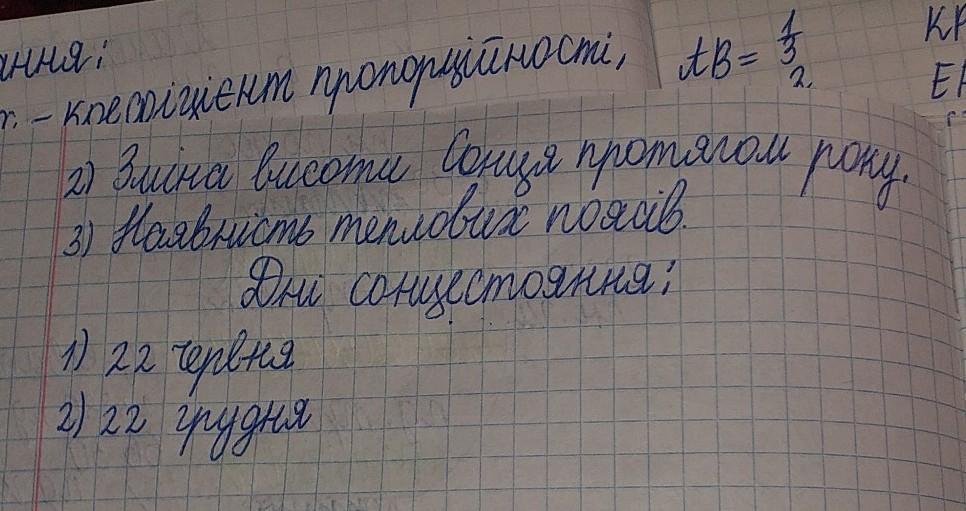 ання:
– коефіцієнт пропорційності,
АВ = 1/3
2.
КР
2) Зміна висоти Сонця протягом року.
3) Наявність теплових поясів.
Дні сонцестояння:
1) 22 червня
2) 22 грудня